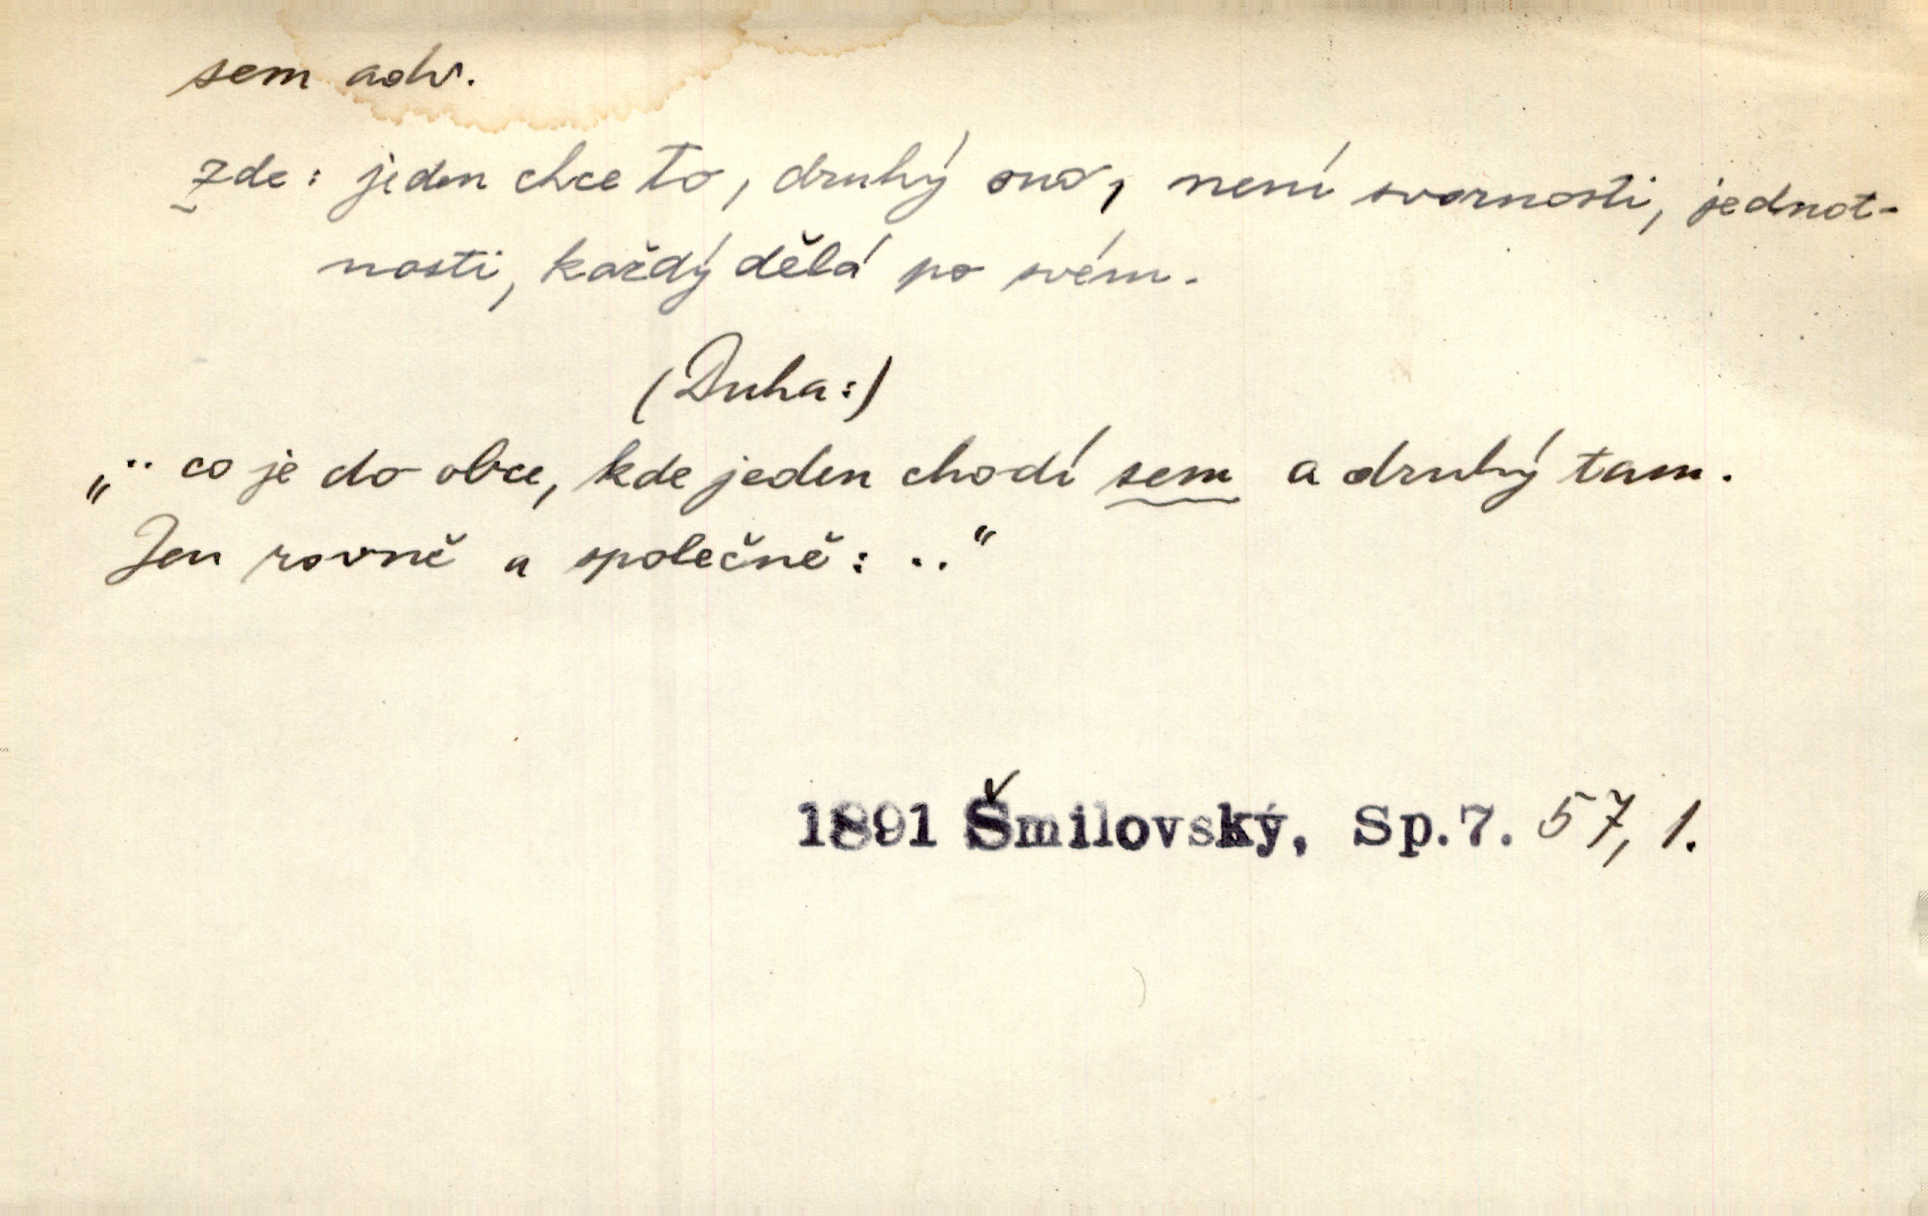 sem adv.
zde: jeden chce to, druhý ono, není svornosti, jednot-
nosti, každý dělá po svém.
(Duha:)
„.. co je do obce, kde jeden chodí sem a druhý tam.
Jen rovně a společně: .."
1891 Šmilovský, Sp.7. 57, 1.